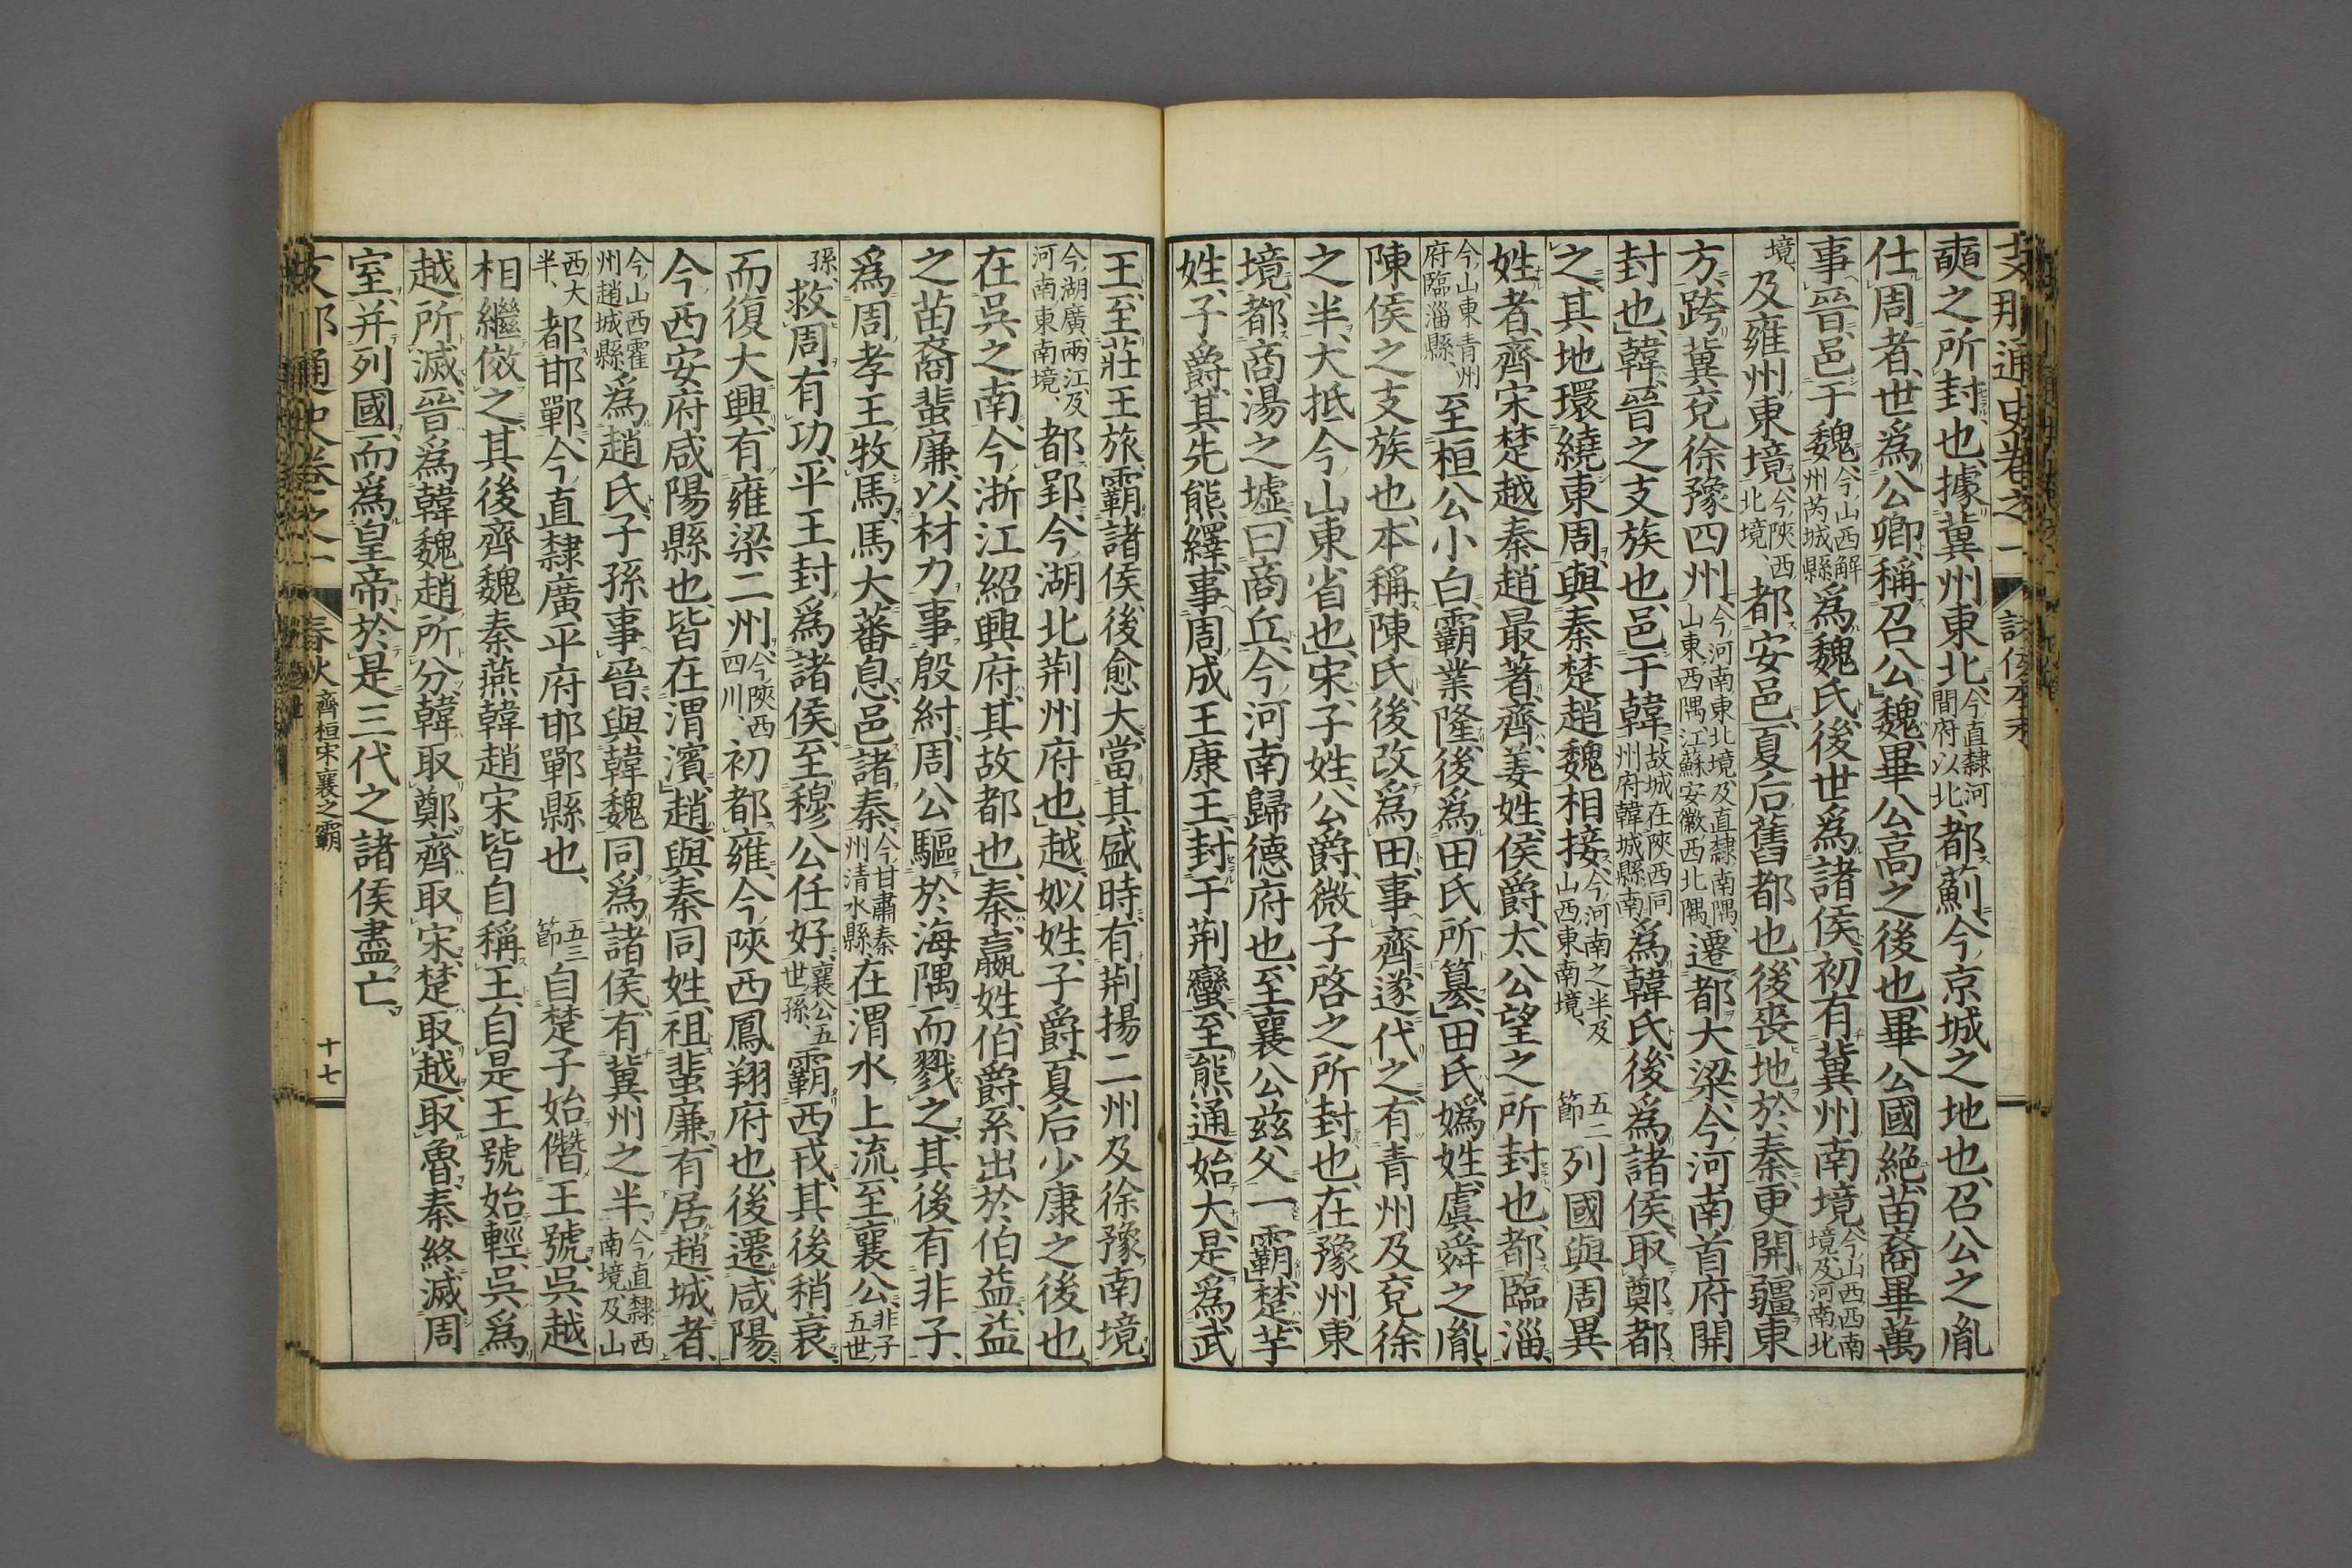 支那通史卷之一 諸侯本末
奭之所封也、據冀州東北、今直隸河間府以北、都薊、今京城之地也、召公之胤
仕周者、世爲公卿、稱召公、魏、畢公高之後也、畢公國絶、苗裔畢萬
事晉、邑于魏、今山西解州芮城縣爲魏氏、後世爲諸侯、初有冀州南境、今山西西南境、及河南北
境、及雍州東境、今陝西北境、都安邑、夏后舊都也、後喪地於秦、更開疆東
方、跨冀兗徐豫四州、今河南東北境、及直隸南隅、山東西隅、江蘇安徽西北隅、遷都大梁、今河南首府開
封也、韓、晉之支族也、邑于韓故城在陝西同州府韓城縣南爲韓氏、後爲諸侯、取鄭都
之、其地環繞東周、與秦楚趙魏相接、今河南之半、及山西東南境、 五二節 列國與周異
姓者、齊宋楚越秦趙最著、齊、姜姓、侯爵、太公望之所封也、都臨淄、
今山東青州府臨淄縣、至桓公小白、霸業隆、後爲田氏所簒、田氏、嬀姓、虞舜之胤、
陳侯之支族也、本稱陳氏、後改爲田、事齊、遂代之、有青州及兗徐
之半、大抵今山東省也、宋、子姓、公爵、微子啓之所封也、在豫州東
境、都商湯之墟、曰商丘、今河南歸德府也、至襄公茲父一霸、楚、芈
姓、子爵、其先熊繹、事周成王康王、封于荆蠻、至熊通始大、是爲武
王、至莊王旅、霸諸侯、後愈大、當其盛時、有荆揚二州及徐豫南境、
今湖廣兩江及河南東南境、都郢、今湖北荆州府也、越、姒姓、子爵、夏后少康之後也、
在呉之南、今浙江紹興府、其故都也、秦、嬴姓、伯爵、系出於伯益、益
之苗裔蜚廉、以材力事殷紂、周公驅於海隅、而戮之、其後有非子、
爲周孝王牧馬、馬大蕃息、邑諸秦、今甘肅秦州清水縣、在渭水上流、至襄公、非子五世
孫、救周有功、平王封爲諸侯、至穆公任好、襄公五世孫、霸西戎、其後稍衰
而復大興、有雍梁二州、今陝西四川、初都雍、今陝西鳳翔府也、後遷咸陽、
今西安府咸陽縣也、皆在渭濱、趙、與秦同姓、祖蜚廉、有居趙城者、
今山西霍州趙城縣爲趙氏、子孫事晉、與韓魏同爲諸侯、有冀州之半、今直隸西南境及山
西大半、都邯鄲、今直隸廣平府邯鄲縣也、 五三節 自楚子始僭王號、呉越
相繼傚之、其後齊魏秦燕韓趙宋皆自稱王、自是王號始輕、呉爲
越所滅、晉爲韓魏趙所分、韓取鄭、齊取宋、楚取越、取魯、秦終滅周
室、并列國、而爲皇帝、於是三代之諸侯盡亡、
支那通史卷之一 春秋 齊桓宋襄之霸 十七